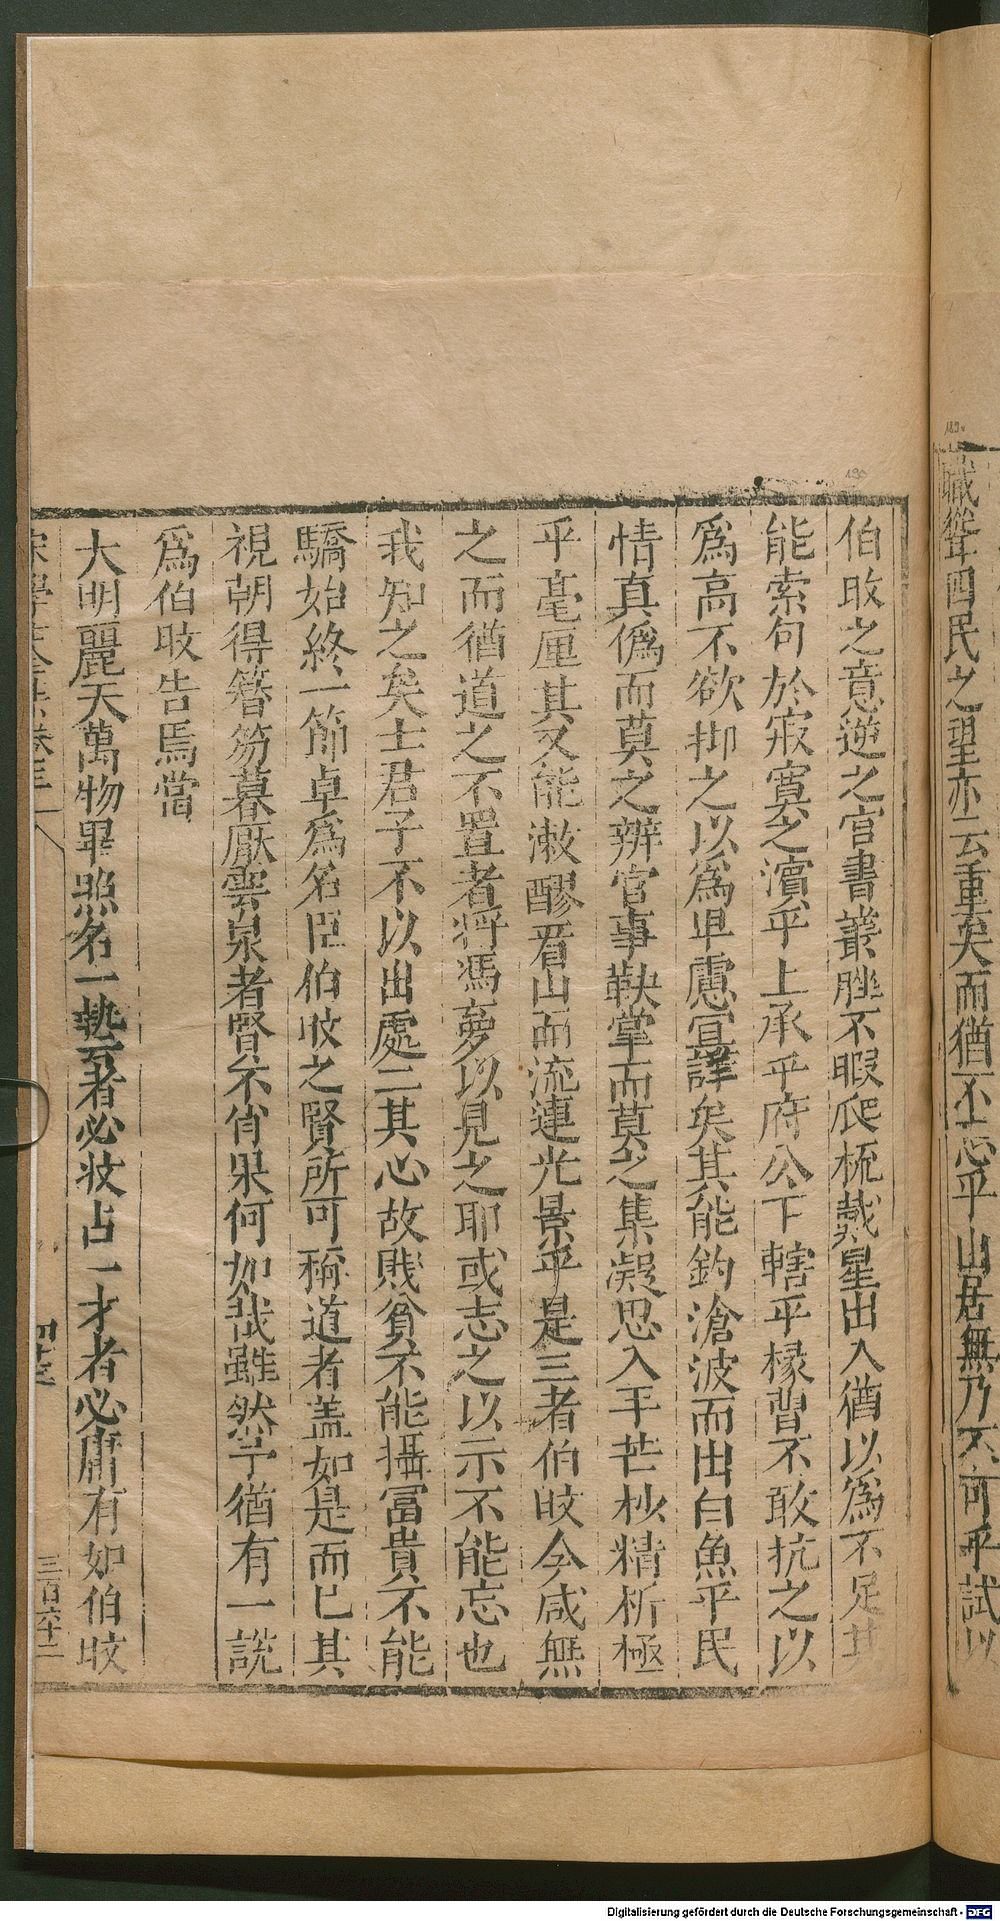 職聳四民之望亦云重矣而猶不忘乎山居無乃不可乎試以
伯旼之意逆之官書叢脞不暇爬梳戴星出入猶以爲不足其
能索句於寂寞之濱乎上承乎府公下轄乎椽曹不敢抗之以
爲高不欲抑之以爲卑慮宣譁矣其能釣滄波而出白魚乎民
情真僞而莫之辨官事鞅掌而莫之集凝思入乎芒杪精析極
乎毫厘其又能漱醪看山而流連光景乎是三者伯旼今咸無
之而猶道之不置者將馮夢以見之耶或志之以示不能忘也
我知之矣士君子不以出處二其心故賤貧不能攝冨貴不能
驕始終一節卓爲名臣伯旼之賢所可稱道者盖如是而已其
視朝得簪笏暮厭雲泉者賢不肖果何如哉雖然予猶有一說
爲伯旼告焉當
大明麗天萬物畢照名一埶者必妝占一才者必庸有如伯旼
宋學士全集卷三十
四十三
三百六十二
190
189v
Digitalisierung gefördert durch die Deutsche Forschungsgemeinschaft - DFG